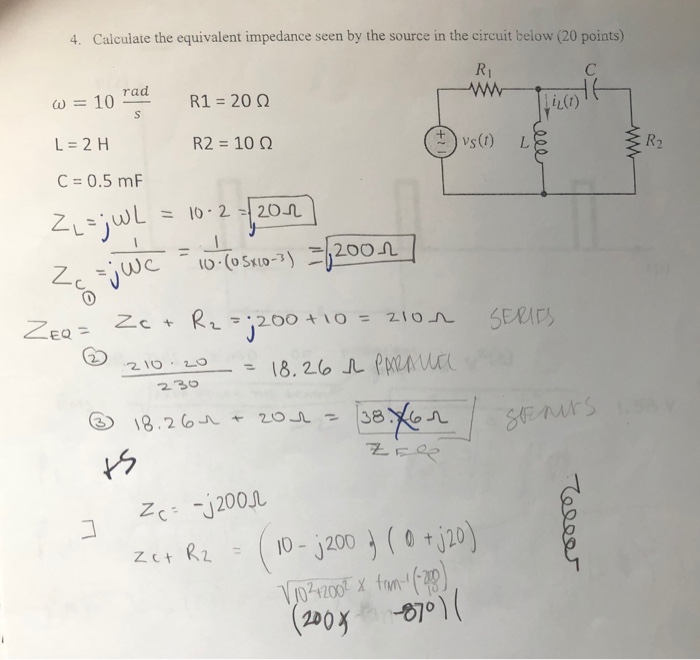 4. Calculate the equivalent impedance seen by the source in the circuit below (20 points)
R₁
C
ω = 10 rad/s
R1 = 20 Ω
i_L(t)
L = 2 H
R2 = 10 Ω
+ -
v_S(t)
L
R₂
C = 0.5 mF
Z_L = jωL = 10·2 = j20Ω
Z_C = 1/jωC = 1/10·(0.5x10-3) = j200Ω
Z_EQ = ① Z_C + R₂ = j200 + 10 = 210Ω SERIES
② 210·20/230 = 18.26 Ω PARALLEL
③ 18.26Ω + 20Ω = 38.26Ω SERIES
Z_EQ
+5
Z_C = -j200Ω
Z_C + R₂ = (10 - j200) (0 + j20)
√10²+200² x tan⁻¹(-200/10)
(200 -87°)(